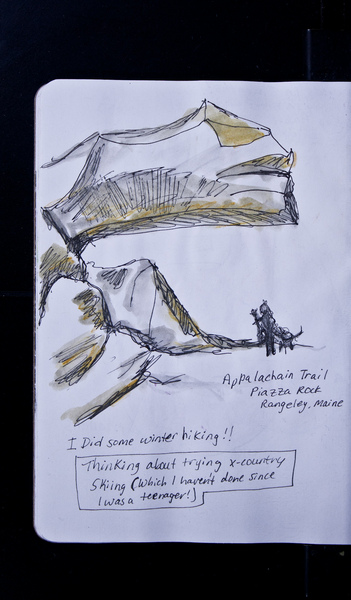 Appalachain Trail
Piazza Rock
Rangeley, Maine
I Did some winter hiking!!
Thinking about trying x-country
Skiing (Which I haven't done since
I was a teenager!)